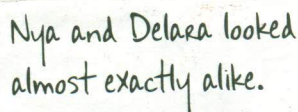 Nya and Delara looked
almost exactly alike.